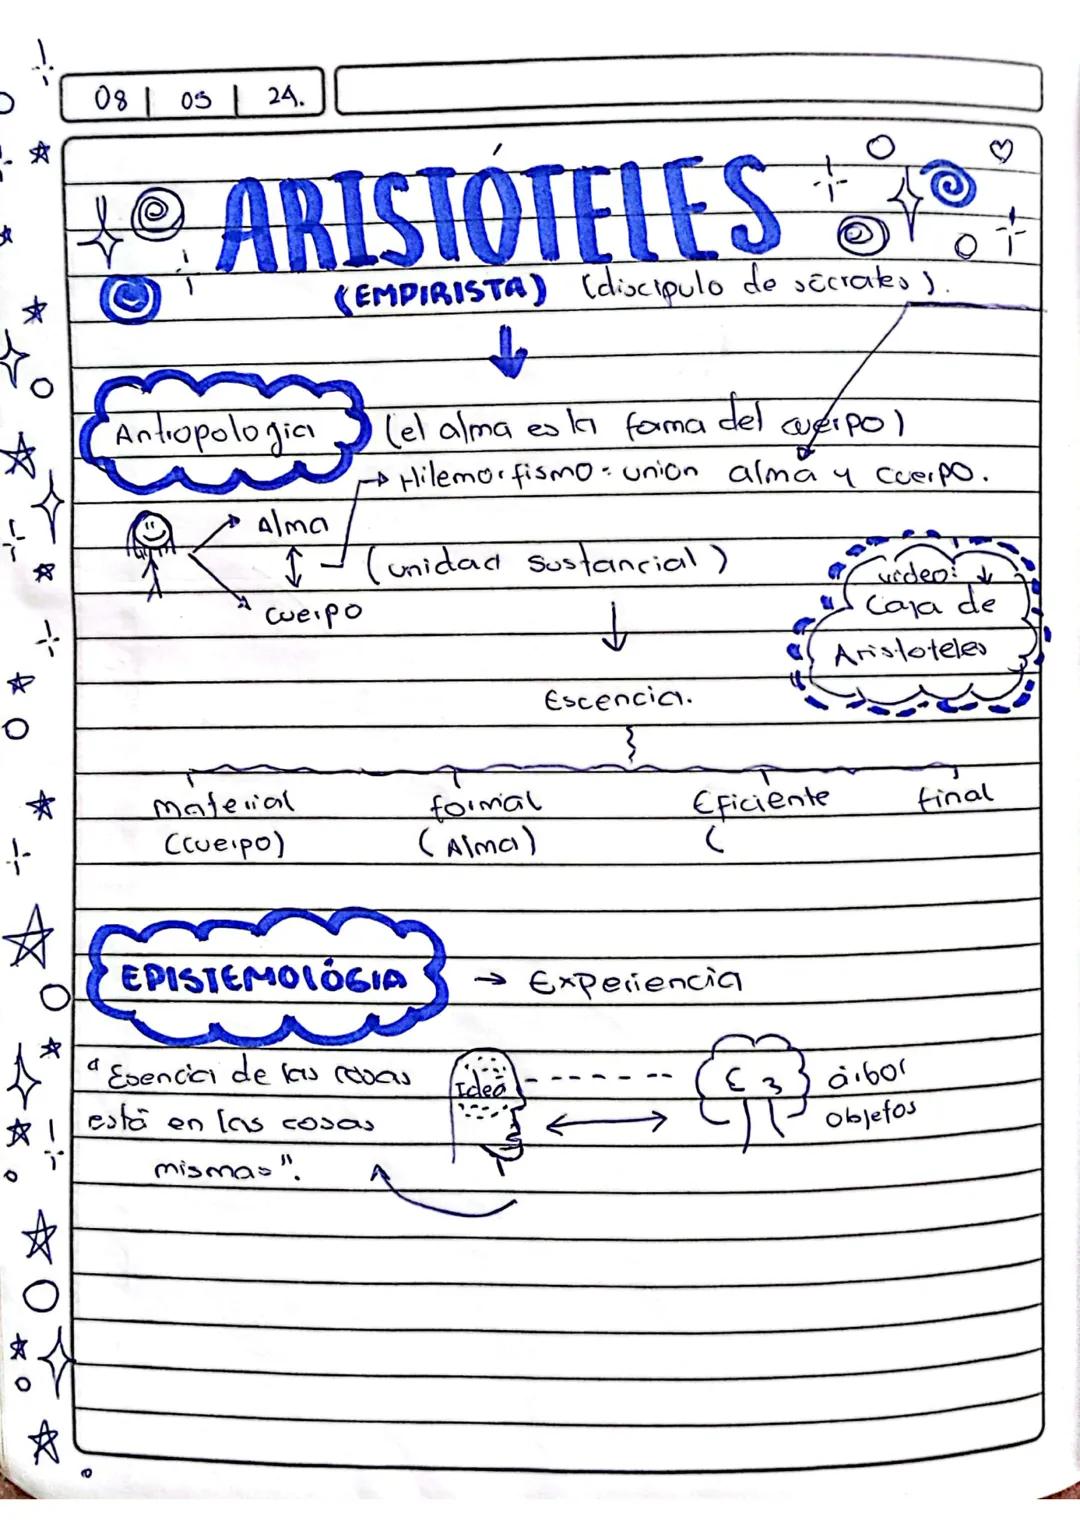 08 | 05 | 24.
ARISTÓTELES
(EMPIRISTA) (discipulo de sócrates).
Antropologia (el alma es la forma del cuerpo)
→ Hilemorfismo = unión alma y cuerpo.
Alma
(unidad sustancial)
cuerpo
video: ↓
Caja de
Aristoteles
Escencia.
material formal Eficiente final
(cuerpo) (Alma) (
EPISTEMOLÓGIA → Experiencia
"Esencia de las cosas
está en las cosas
mismas".
Idea
árbol
objetos